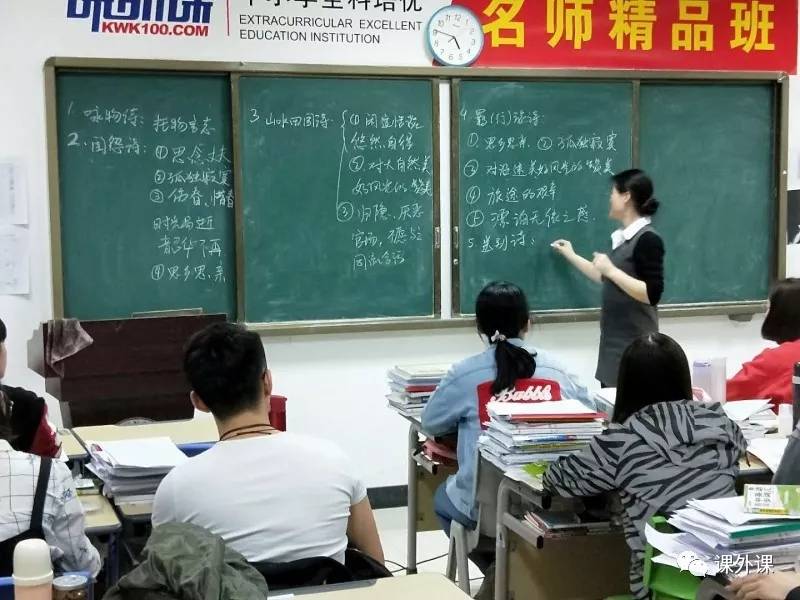 KWK100.COM
EXTRACURRICULAR EXCELLENT
EDUCATION INSTITUTION
名师精品班
1 咏物诗：托物言志
2. 闺怨诗：①思念丈夫
②孤独寂寞
③伤春、惜春
时光易逝
韶华不再
④思乡思亲
3. 山水田园诗：
①闲适恬淡
悠然自得
②对大自然美
好风光的赞美
③归隐、厌恶
官场，
4. 羁(行)旅诗：
①思乡思亲，②孤独寂寞
③对沿途美好风光的赞美
④旅途的艰辛
⑤漂泊无依之感
5. 送别诗：
课外课